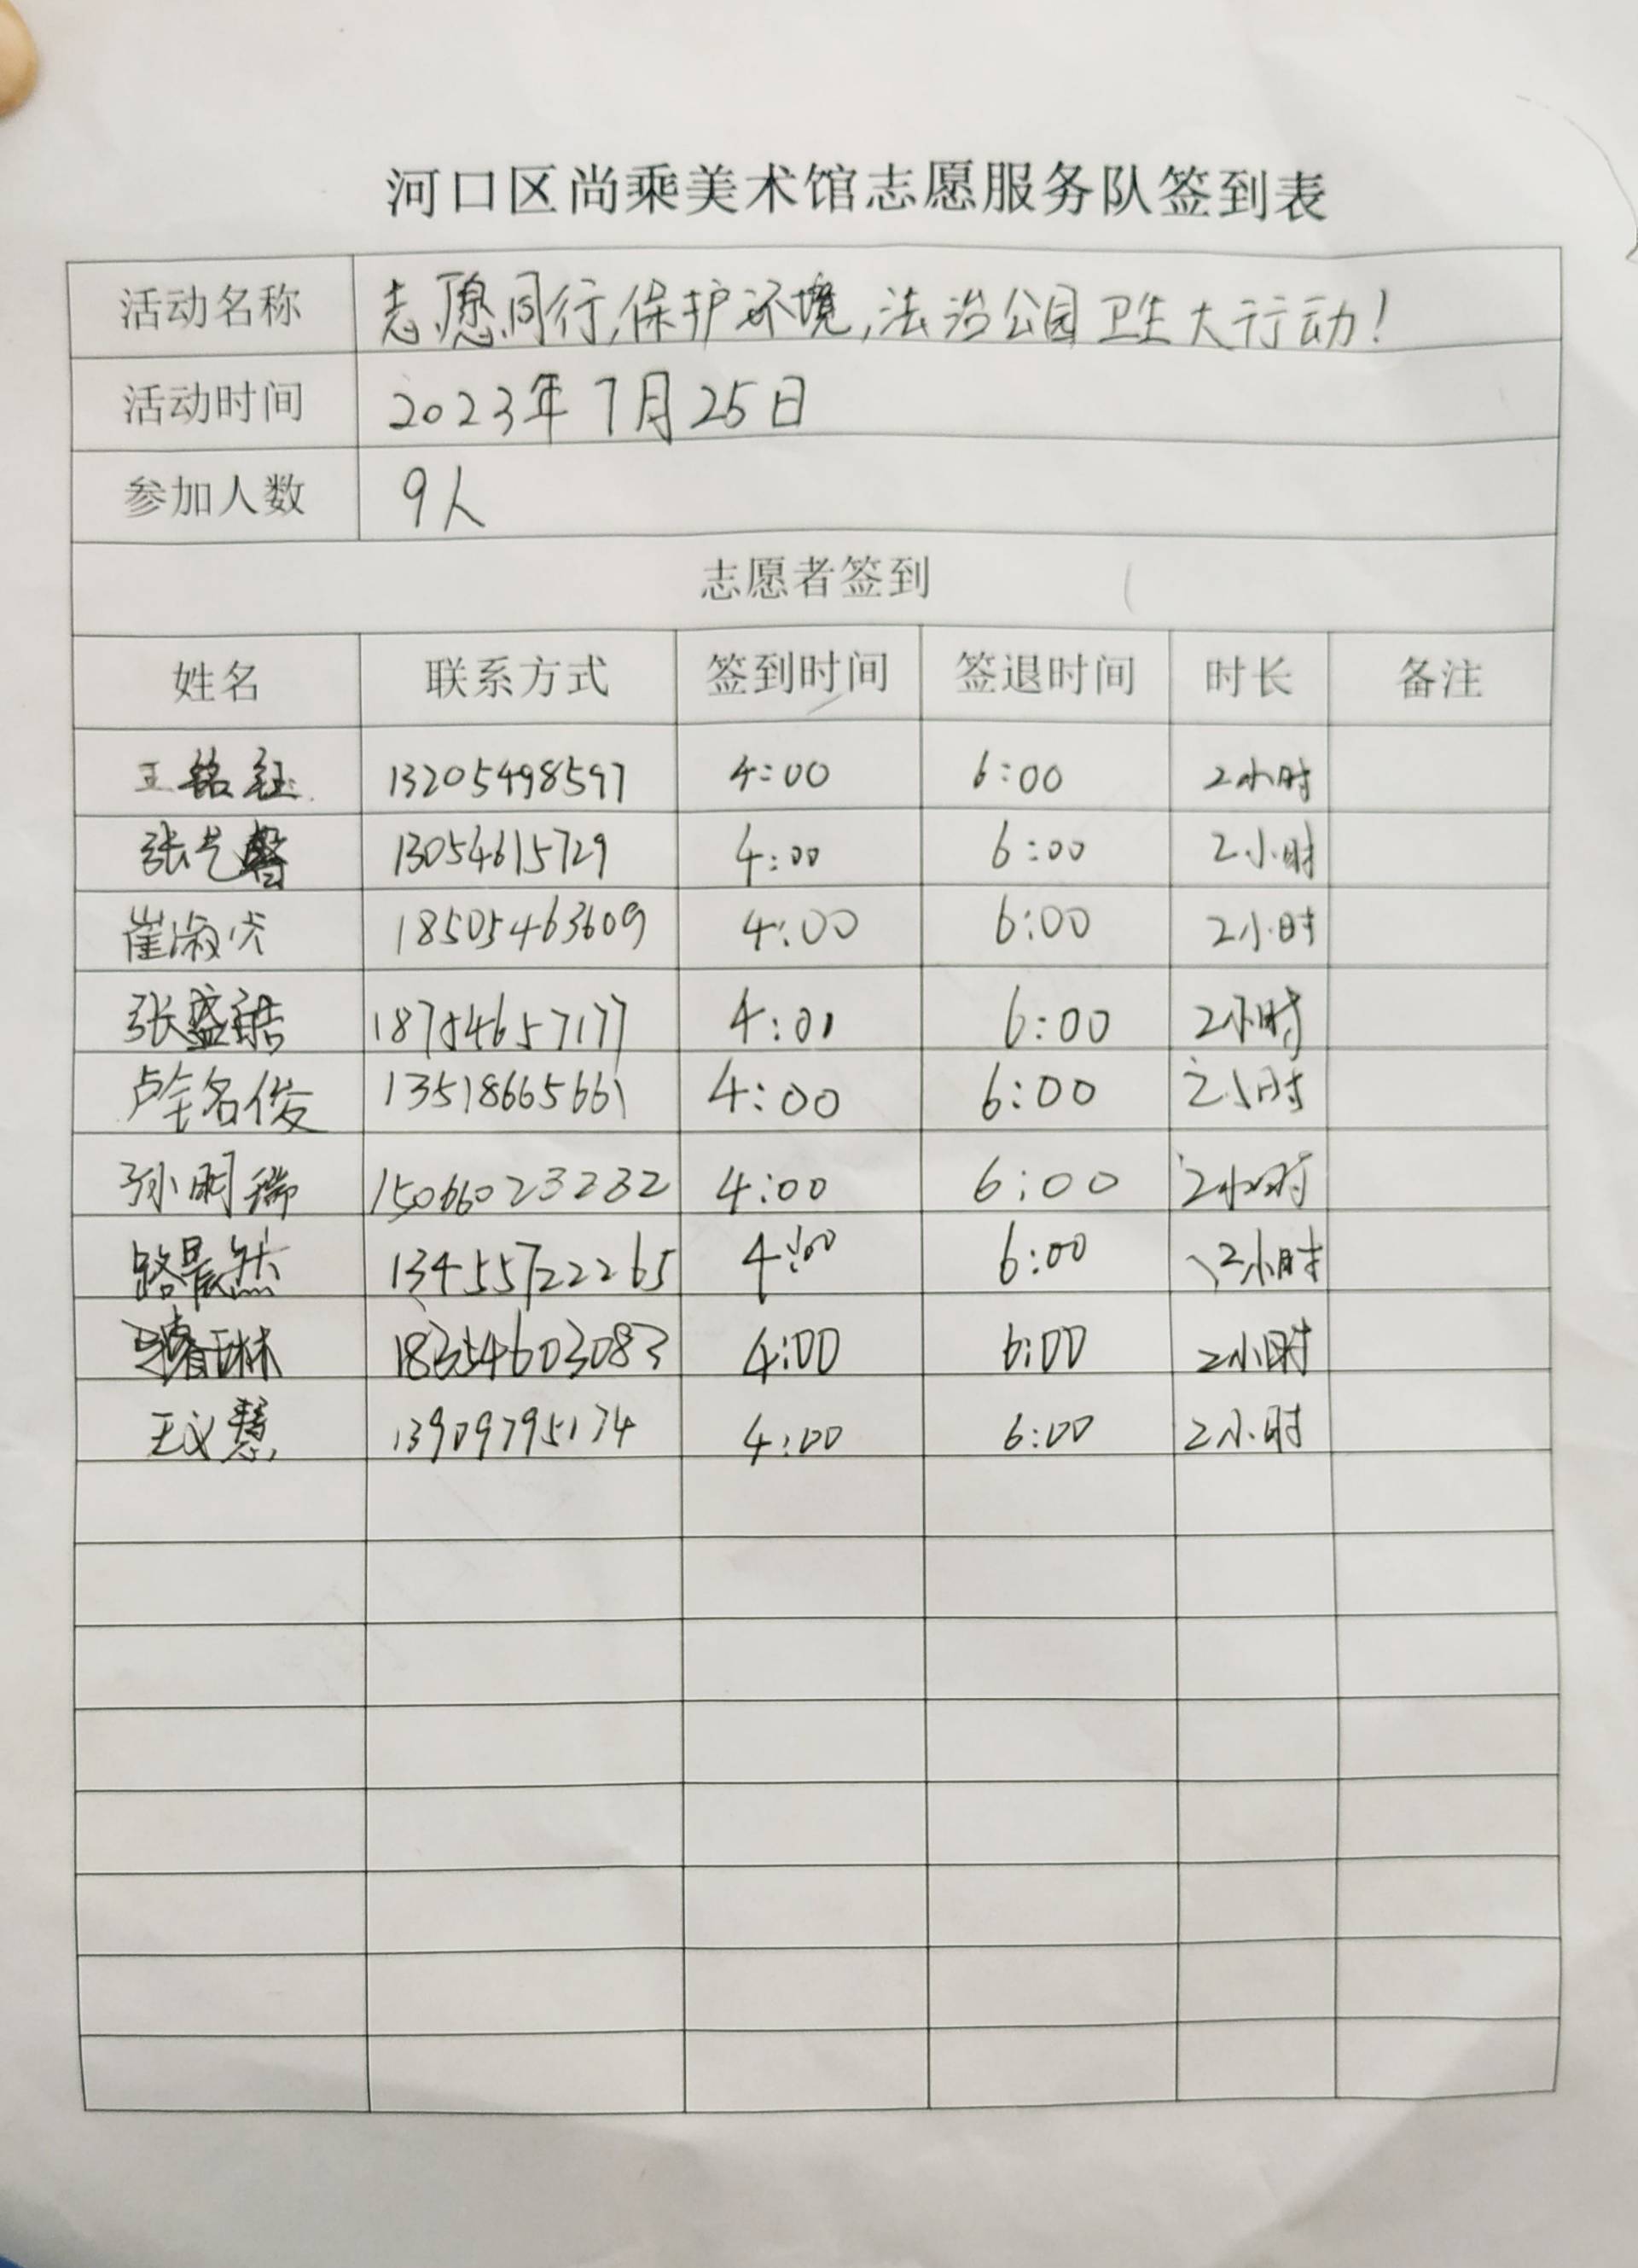 河口区尚乘美术馆志愿服务队签到表
活动名称 志愿同行,保护环境,法治公园卫生大行动!
活动时间 2023年7月25日
参加人数 9人
志愿者签到
姓名 联系方式 签到时间 签退时间 时长 备注
王铭钰 13205498597 4:00 6:00 2小时
张艺馨 13054615729 4:00 6:00 2小时
崔淑 18505463609 4:00 6:00 2小时
张盛 18754657177 4:01 6:00 2小时
卢名俊 13518665661 4:00 6:00 2小时
孙明瑞 15066023232 4:00 6:00 2小时
路晨然 13455722265 4:00 6:00 2小时
琳 18354603083 4:00 6:00 2小时
王义慧 13909795174 4:00 6:00 2小时